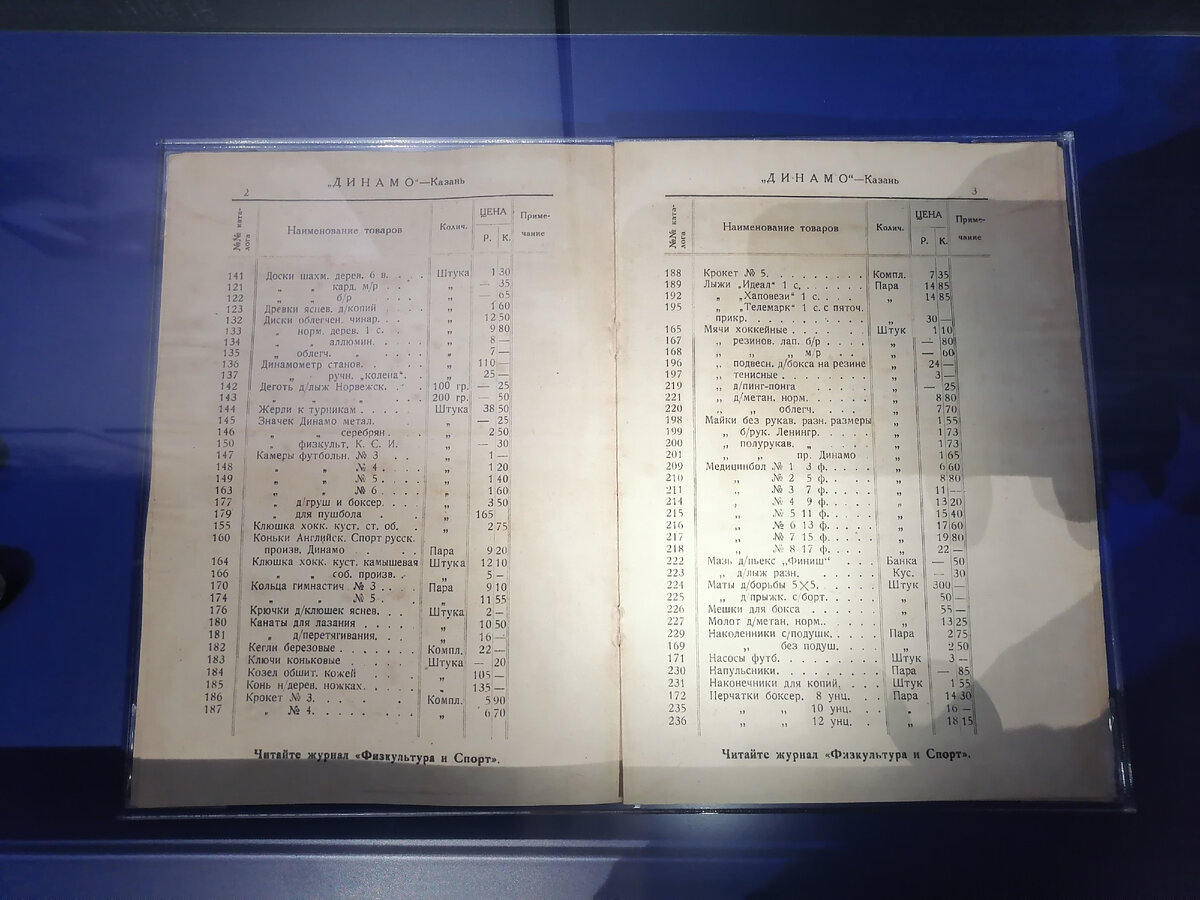 2
„ДИНАМО“—Казань
№№ ката-
лога
Наименование товаров
Колич.
ЦЕНА
Р. К.
Приме-
чание
141 Доски шахм. дерев. 6 в. . . . Штука 1 30
121 „ „ кард. м/р . . . „ — 35
122 „ „ б/р . . . „ — 65
123 Древки яснев. д/копий . . . . „ 1 60
132 Диски облегчен. чинар. . . . „ 12 50
133 „ норм. дерев. 1 с. . . „ 9 80
134 „ „ аллюмин. . . . „ 8 —
135 „ облегч. „ . . . . „ 7 —
136 Динамометр станов. . . . . „ 110 —
137 „ ручн. „колена“. . . „ 25 —
142 Деготь д/лыж Норвежск. . . 100 гр. — 25
143 „ „ „ . . 200 гр. — 50
144 Жерди к турникам . . . . . Штука 38 50
145 Значек Динамо метал. . . . „ — 25
146 „ „ серебрян . . „ 2 50
150 „ физкульт. К. С. И. . „ — 30
147 Камеры футбольн. № 3 . . „ 1 —
148 „ „ № 4 . . . . „ 1 20
149 „ „ № 5 . . . . „ 1 40
163 „ „ № 6 . . . . „ 1 60
177 „ д/груш и боксер. . . . „ 3 50
179 „ для пушбола . . „ 165
155 Клюшка хокк. куст. ст. об. . „ 2 75
160 Коньки Английск. Спорт русск.
произв. Динамо . . . . Пара 9 20
164 Клюшка хокк. куст. камышевая Штука 12 10
166 „ „ соб. произв. . „ 5 —
170 Кольца гимнастич № 3 . . . Пара 9 10
174 „ „ № 5 . . . „ 11 55
176 Крючки д/клюшек яснев. . . . Штука 2 —
180 Канаты для лазания . . . . „ 10 50
181 „ д/перетягивания. . . . „ 16 —
182 Кегли березовые . . . . . Компл. 22 —
183 Ключи коньковые . . . . . Штука — 20
184 Козел обшит. кожей . . . . „ 105 —
185 Конь н/дерев. ножках. . . . . „ 135 —
186 Крокет № 3. . . . . . . Компл. 5 90
187 „ № 4. . . . . . . . „ 6 70
Читайте журнал «Физкультура и Спорт».
„ДИНАМО“—Казань
3
№№ ката-
лога
Наименование товаров
Колич.
ЦЕНА
Р. К.
Приме-
чание
188 Крокет № 5. . . . . . . . . Компл. 7 35
189 Лыжи „Идеал“ 1 с. . . . . . Пара 14 85
192 „ „Хаповези“ 1 с. . . . . „ 14 85
195 „ „Телемарк“ 1 с. с пяточ.
прикр. . . . . . . . . . „ 30 —
165 Мячи хоккейные . . . . . . Штук 1 10
167 „ резинов. лап. б/р . . . . „ — 80
168 „ „ „ м/р . . . . „ — 60
196 „ подвесн. д/бокса на резине „ 24 —
197 „ тенисные . . . . . . . . „ 3 —
219 „ д/пинг-понга . . . . . „ — 25
221 „ д/метан. норм. . . . . . „ 8 80
220 „ „ облегч. . . . . „ 7 70
198 Майки без рукав. разн. размеры „ 1 55
199 „ б/рук. Ленингр. . . . . „ 1 73
200 „ полурукав. „ . . . . „ 1 73
201 „ „ пр. Динамо „ 1 65
209 Медицинбол № 1 3 ф. . . . . „ 6 60
210 „ № 2 5 ф. . . . . „ 8 80
211 „ № 3 7 ф. . . . . „ 11 —
214 „ № 4 9 ф. . . . . „ 13 20
215 „ № 5 11 ф. . . . . „ 15 40
216 „ № 6 13 ф. . . . . „ 17 60
217 „ № 7 15 ф. . . . . „ 19 80
218 „ № 8 17 ф. . . . . „ 22 —
222 Мазь д/пьекс „Финиш“ . . . Банка — 50
223 „ д/лыж разн. . . . . . Кус. — 30
224 Маты д/борьбы 5×5. . . . . . Штук 300 —
225 „ д прыжк. с/борт. . . . . „ 50 —
226 Мешки для бокса . . . . . „ 55 —
227 Молот д/метан. норм.. . . . . „ 13 25
229 Наколенники с/подушк. . . . . Пара 2 75
169 „ без подуш. . . . „ 2 50
171 Насосы футб. . . . . . . . . Штук 3 —
230 Напульсники. . . . . . . . . Пара — 85
231 Наконечники для копий. . . . Штук 1 55
172 Перчатки боксер. 8 унц. . . Пара 14 30
235 „ „ 10 унц. . . „ 16 —
236 „ „ 12 унц. . . „ 18 15
Читайте журнал «Физкультура и Спорт».